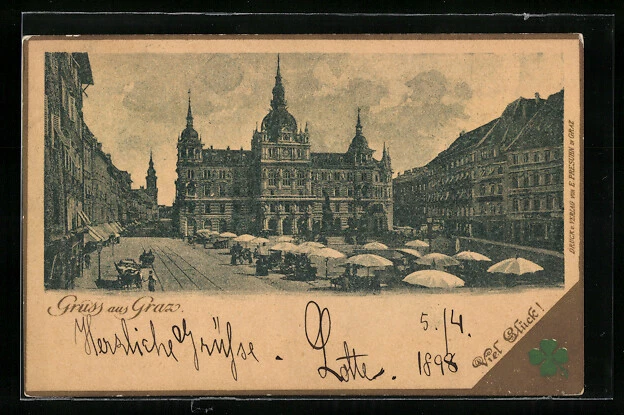 DRUCK u. VERLAG von E. PRESUHN in GRAZ
Gruss aus Graz.
Herzliche Grüsse. Lotte. 5./4.
1898
Viel Glück!